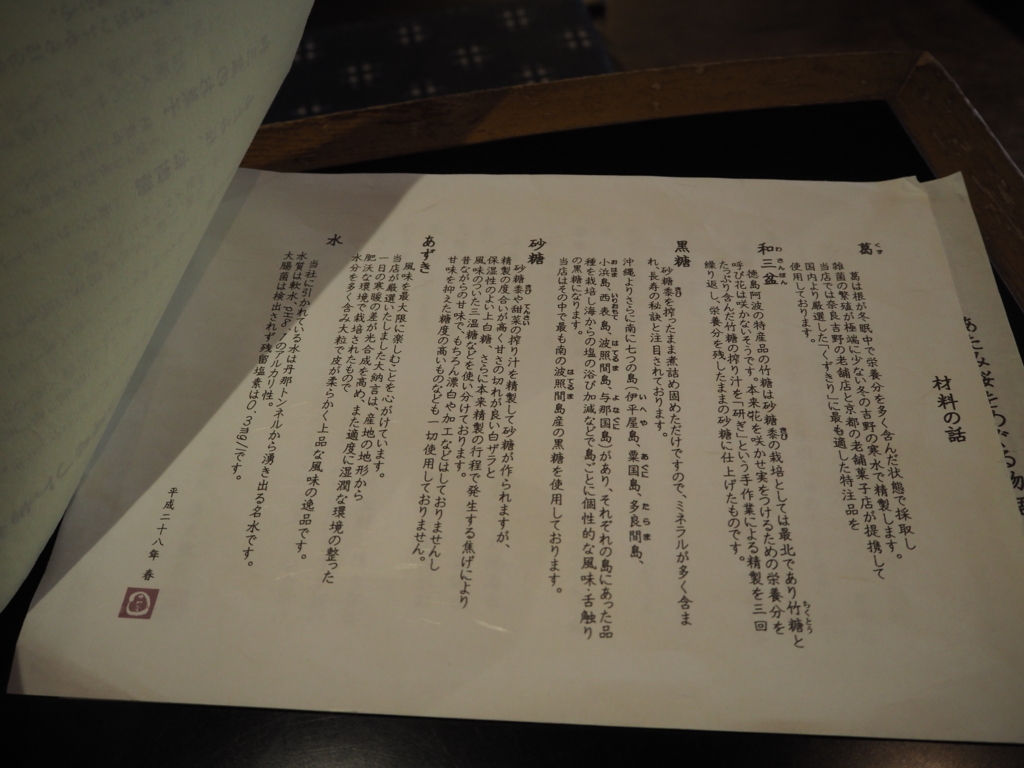 材料の話
葛
くず
葛は根が冬眠中で栄養分を多く含んだ状態で採取し
雑菌の繁殖が極端に少ない冬の吉野の寒水で精製します。
当店では奈良吉野の老舗店と京都の老舗菓子店が提携して
国内より厳選した「くずきり」に最も適した特注品を
使用しております。
和三盆
わさんぼん
徳島阿波の特産品の竹糖は砂糖黍の栽培としては最北であり竹糖と
きび
ちくとう
呼び花は咲かないそうです。本来花を咲かせ実をつけるための栄養分を
たっぷり含んだ竹糖の搾り汁を「研ぎ」という手作業による精製を三回
繰り返し、栄養分を残したままの砂糖に仕上げたものです。
黒糖
砂糖黍を搾ったまま煮詰め固めただけですので、ミネラルが多く含ま
きび
れ、長寿の秘訣と注目されております。
沖縄よりさらに南に七つの島（伊平屋島、粟国島、多良間島、
いへや
あぐに
たらま
小浜島、西表島、波照間島、与那国島）があり、それぞれの島にあった品
はてるま
よなぐに
種を栽培し海からの塩の浴び加減などで島ごとに個性的な風味・舌触り
の黒糖になります。
当店はその中で最も南の波照間島産の黒糖を使用しております。
はてるま
砂糖
砂糖黍や甜菜の搾り汁を精製して砂糖が作られますが、
きび
てんさい
精製の度合いが高く甘さの切れが良い白ザラと
保湿性のよい上白糖、さらに本来精製の行程で発生する焦げにより
風味のついた三温糖などを使い分けております。
昔ながらの甘味で、もちろん漂白や加工などはしておりませんし
甘味を抑えた糖度の高いものなども一切使用しておりません。
あずき
風味を最大限に楽しむことを心がけています。
当店が厳選いたしました大納言は、産地の地形から
一日の寒暖の差が光合成を高め、また適度に湿潤な環境の整った
肥沃な環境で栽培されたもので
水分を多く含み大粒で皮が柔らかく上品な風味の逸品です。
水
当社に引かれている水は丹那トンネルから湧き出る名水です。
水質は軟水、のアルカリ性。
大腸菌は検出されず残留塩素は0.3mg/lです。
平成二十八年 春